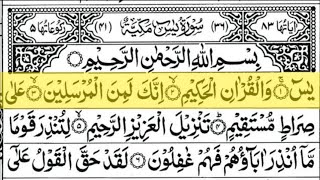 اٰيَاتُهَا ٨٣ (٣٦) سُوْرَةُ يٰسٓ مَكِّيَّةٌ (٤١) رُكُوْعَاتُهَا ٥
بِسْمِ اللّٰهِ الرَّحْمٰنِ الرَّحِيْمِ
يٰسٓ ۚ ١ وَالْقُرْاٰنِ الْحَكِيْمِ ۙ ٢ اِنَّكَ لَمِنَ الْمُرْسَلِيْنَ ۙ ٣ عَلٰى
صِرَاطٍ مُّسْتَقِيْمٍ ؕ ٤ تَنْزِيْلَ الْعَزِيْزِ الرَّحِيْمِ ۙ ٥ لِتُنْذِرَ قَوْمًا
مَّاۤ اُنْذِرَ اٰبَآؤُهُمْ فَهُمْ غٰفِلُوْنَ ٦ لَقَدْ حَقَّ الْقَوْلُ عَلٰۤى